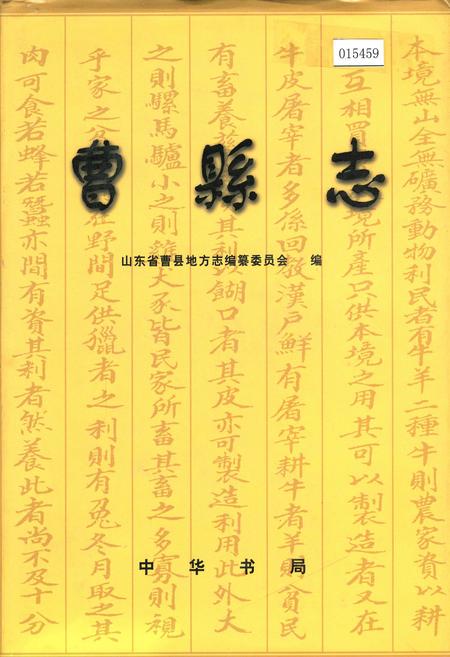 015459
曹縣志
山东省曹县地方志编纂委员会 编
中华书局
本境無山全無礦務動物利民者有牛羊二種牛則農家資以耕
互相買境所產只供本境之用其可以製造者又在
牛皮屠宰者多係回教漢戶鮮有屠宰耕牛者羊則貧民
有畜養其利以餬口者其皮亦可製造利用此外大
之則騾馬驢小之則雞犬豕皆民家所畜其畜之多寡則視
乎家之在野間足供獵者之利則有兔冬月取之其
肉可食若蜂若蠶亦間有資其利者然養此者尚不及十分